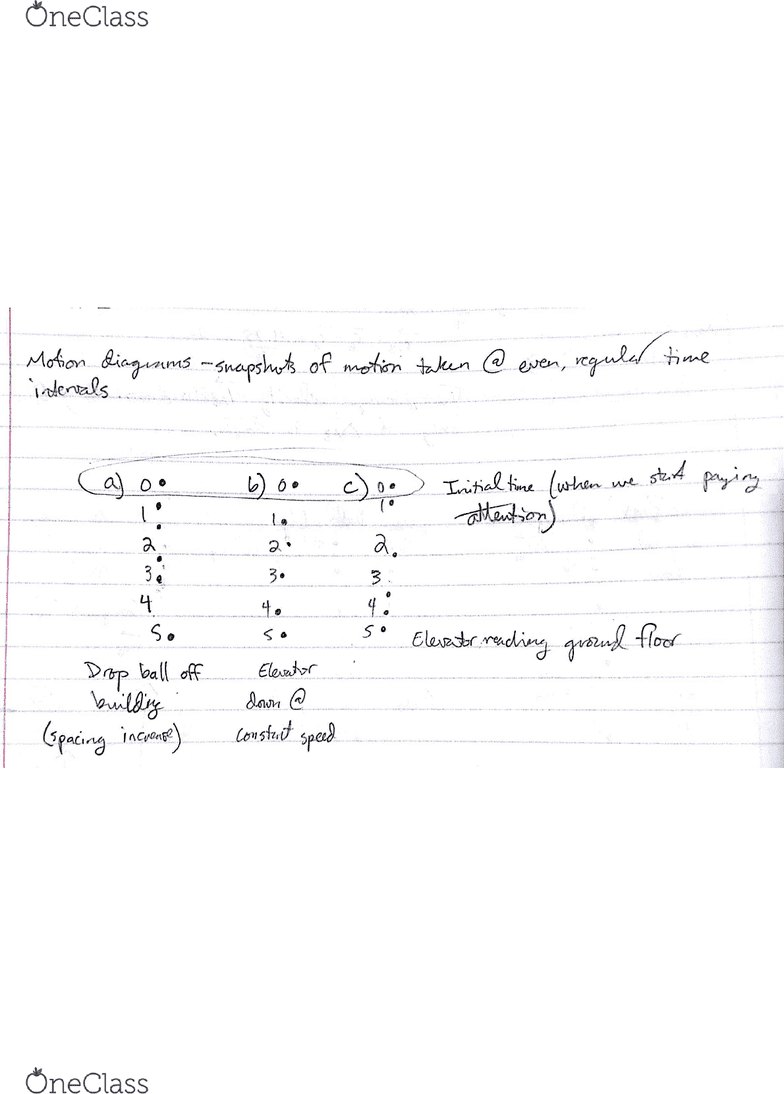 OneClass
Motion diagrams - snapshots of motion taken @ even, regular time
intervals
a) 0 b) 0 c) 0 Initial time (when we start paying
attention)
1 1 1
2 2 2
3 3 3
4 4 4
5 5 5 Elevator reaching ground floor
Drop ball off Elevator
building down @
(spacing increase) constant speed
OneClass